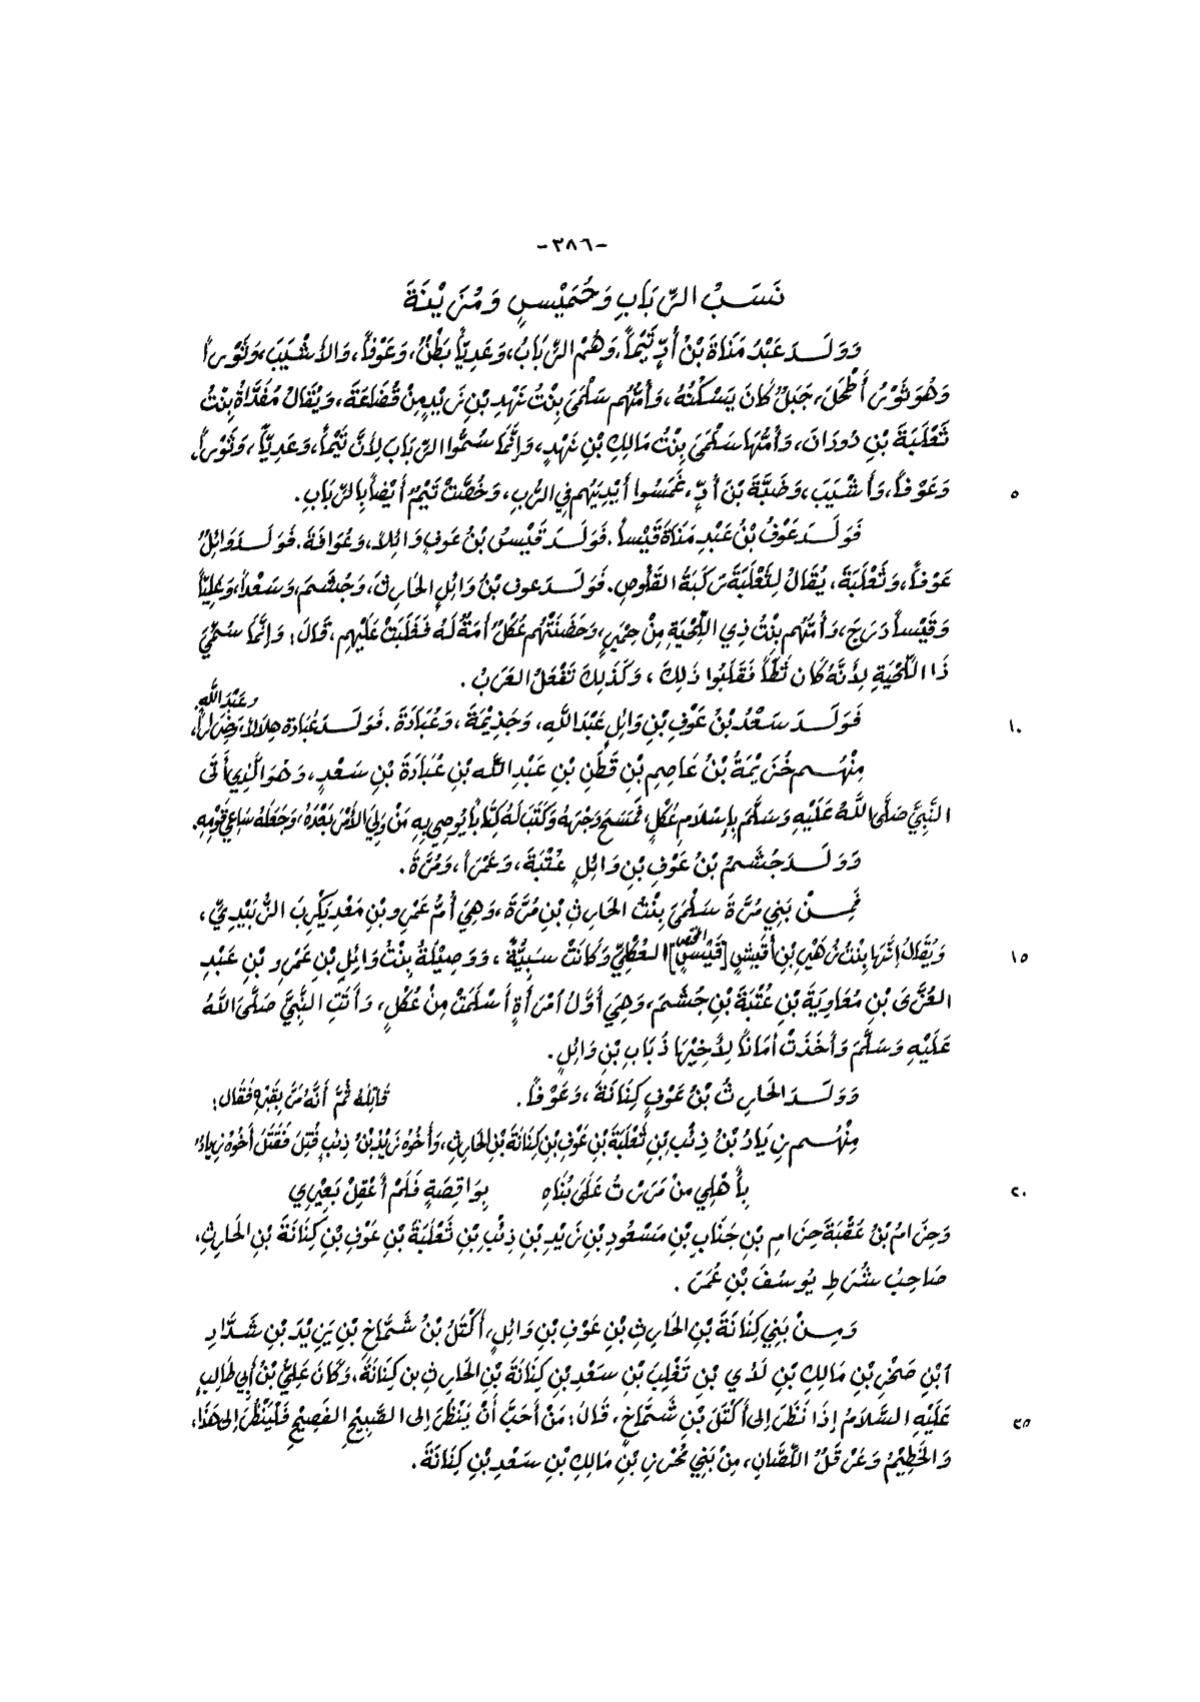 -٣٨٦-
نَسَبُ الرِّبَابِ وَحُمَيْسٍ وَمُزَيْنَةَ
وَوَلَـدَ عَبْدُ مَنَاةَ بْنُ أُدٍّ تَيْماً، وَهُمُ الرِّبَابُ، وَعَدِيّاً بَطْنٌ، وَعَوْفاً، وَالأَشْيَبَ، وَثَوْراً
وَهُوَ ثَوْرُ أَطْحَلَ، جَبَلٌ كَانَ يَسْكُنُهُ، وَأُمُّهُم سَلْمَى بِنْتُ نَهْدِ بْنِ زَيْدٍ مِنْ قُضَاعَةَ، وَيُقَالُ مُفَدَّاةُ بِنْتُ
ثَعْلَبَةَ بْنِ دُودَانَ، وَأُمُّهَا سَلْمَى بِنْتُ مَالِكِ بْنِ نَهْدٍ، وَإِنَّمَا سُمُّوا الرِّبَابَ لِأَنَّ تَيْماً، وَعَدِيّاً، وَثَوْراً،
وَعَوْفاً، وَأَشْيَبَ، وَضَبَّةَ بْنَ أُدٍّ، غَمَسُوا أَيْدِيَهُم فِي الرُّبِ، وَخُصَّتْ تَيْمُ أَيْضاً بِالرِّبَابِ. ٥
فَوَلَـدَ عَوْفُ بْنُ عَبْدِ مَنَاةَ قَيْساً. فَوَلَـدَ قَيْسُ بْنُ عَوفٍ وَائِلاً، وَعُوَافَةَ. فَوَلَـدَ وَائِلٌ
عَوْفاً، وَثَعْلَبَةَ، يُقَالُ لِثَعْلَبَةَ رَكَبَةُ القَلُوصِ. فَوَلَـدَ عوف بْنُ وَائِلٍ الحَارِثَ، وَجُشَمَ، وَسَعْداً، وَعَلِيّاً
وَقَيْساً دَرَجَ، وَأُمُّهُم بِنْتُ ذِي اللِّحْيَةِ مِنْ حِمْيَرٍ، وَحَضَنَتْهُم عُكْلٌ أَمَةٌ لَهُ فَغَلَبَتْ عَلَيْهِم، قَالَ: وَإِنَّمَا سُمِّيَ
ذَا اللِّحْيَةِ لِأَنَّهُ كَانَ ثَطّاً فَقَلَبُوا ذَلِكَ، وَكَذَلِكَ تَفْعَلُ العَرَبُ.
وعَبْدَ اللّٰهِ.
فَوَلَـدَ سَعْدُ بْنُ عَوْفِ بْنِ وَائِلٍ عَبْدَ اللَّهِ، وَجَذِيْمَةَ، وَعُبَادَةَ. فَوَلَـدَ عُبَادَة هِلاَلاً، وَضِرَاراً، ١٠
مِنْهُـم خُزَيْمَةُ بْنُ عَاصِمِ بْنِ قَطَنِ بْنِ عَبْدِ اللّه بْنِ عُبَادَةَ بْنِ سَعْدٍ، وَهُوَ الَّذِي أَتَى
النَّبِيَّ صَلَّى اللَّهُ عَلَيْهِ وَسَلَّمَ بِإِسْلَامِ عُكْلٍ، فَمَسَحَ وَجْهَهُ وَكَتَبَ لَهُ كِتَاباً يُوصِي بِهِ مَنْ وَلِيَ الأَمْرَ بَعْدَهُ، وَجَعَلَهُ سَاعِيَ قَوْمِهِ.
وَوَلَـدَ جُشَمُ بْنُ عَوْفِ بْنِ وَائِلٍ عُتْبَةَ، وَعَمْراً، وَمُرَّةَ.
فَمِـنْ بَنِي مُرَّةَ سَلْمَى بِنْتُ الحَارِثِ بْنِ مُرَّةَ، وَهِيَ أُمُّ عَمْرِو بْنِ مَعْدِيكَرِبَ الزُّبَيْدِيِّ،
وَيُقَالُ إِنَّهَا بِنْتُ زُهَيْرِ بْنِ أُقَيْشٍ [قَيْسٍ] العُكْلِيِّ وَكَانَتْ سَبِيَّةً، وَوَصِيْلَةُ بِنْتُ وَائِلِ بْنِ عَمْرِو بْنِ عَبْدِ ١٥
العُزَّى بْنِ مُعَاوِيَةَ بْنِ عُتْبَةَ بْنِ جُشَمَ، وَهِيَ أَوَّلُ امْرَأَةٍ أَسْلَمَتْ مِنْ عُكْلٍ، وَأَتَتِ النَّبِيَّ صَلَّى اللهُ
عَلَيْهِ وَسَلَّمَ وَأَخَذَتْ أَمَاناً لِأَخِيْهَا ذُبَابِ بْنِ وَائِلٍ.
وَوَلَـدَ الحَارِثُ بْنُ عَوْفٍ كِنَانَةَ، وَعَوْفاً. قَاتِلَهُ ثُمَّ أَنَّهُ مَرَّ بِقَبْرِهِ فَقَال:
مِنْهُـم زِيَادُ بْنُ ذِئْبِ بْنِ ثَعْلَبَةَ بْنِ عَوْفِ بْنِ كِنَانَةَ بْنِ الحَارِثِ، وَأَخُوهُ زَيْدُ بْنُ ذِئْبٍ قُتِلَ فَقَتَلَ أَخُوهُ زِيَادُ
بِأَهْلِي مَنْ مَرَرْتُ عَلَى بُنَاهِ بِوَاقِصَةٍ فَلَمْ أَعْقِلْ بَعِيْرِي ٢٠
وَحِزَامُ بْنُ عُقْبَةَ حِزَامِ بْنِ جَنَابِ بْنِ مَسْعُودِ بْنِ زَيْدِ بْنِ ذِئْبِ بْنِ ثَعْلَبَةَ بْنِ عَوْفِ بْنِ كِنَانَةَ بْنِ الحَارِثِ،
صَاحِبُ شُرَطِ يُوسُفَ بْنِ عُمَرَ.
وَمِـنْ بَنِي كِنَانَةَ بْنِ الحَارِثِ بْنِ عَوْفِ بْنِ وَائِلٍ، أَكْتَلُ بْنُ شَمَّاخِ بْنِ يَزِيْدَ بْنِ شَدَّادِ
ابْنِ صَخْرِ بْنِ مَالِكِ بْنِ لَأْيِ بْنِ تَغْلِبَ بْنِ سَعْدِ بْنِ كِنَانَةَ بْنِ الحَارِثِ بن كِنَانَةَ، وَكَانَ عَلِيُّ بْنُ أَبِي طَالِبٍ
عَلَيْهِ السَّلَامُ إِذَا نَظَرَ إِلَى أَكْتَلَ بْنِ شَمَّاخٍ، قَالَ: مَنْ أَحَبَّ أَنْ يَنْظُرَ إِلى الصَّبِيْحِ الفَصِيْحِ فَلْيَنْظُرْ إِلى هَذَا، ٢٥
وَالخَطِيْمُ وَعَرْقَلُ اللِّصَّانِ، مِنْ بَنِي مُحْرِزِ بْنِ مَالِكِ بْنِ سَعْدِ بْنِ كِنَانَةَ.